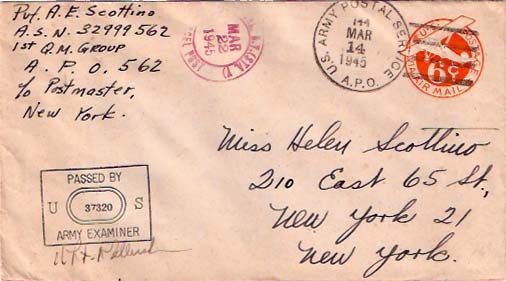 Pvt. A. E. Scottino
A. S. N. 32999562
1st Q. M. GROUP
A. P. O. 562
c/o Postmaster,
New York.
MAR
22
1945
U.S. ARMY POSTAL SERVICE
144
MAR
14
1945
A.P.O.
6¢
AIR MAIL
Miss Helen Scottino
210 East 65 St.,
New York 21
New York.
PASSED BY
U 37320 S
ARMY EXAMINER